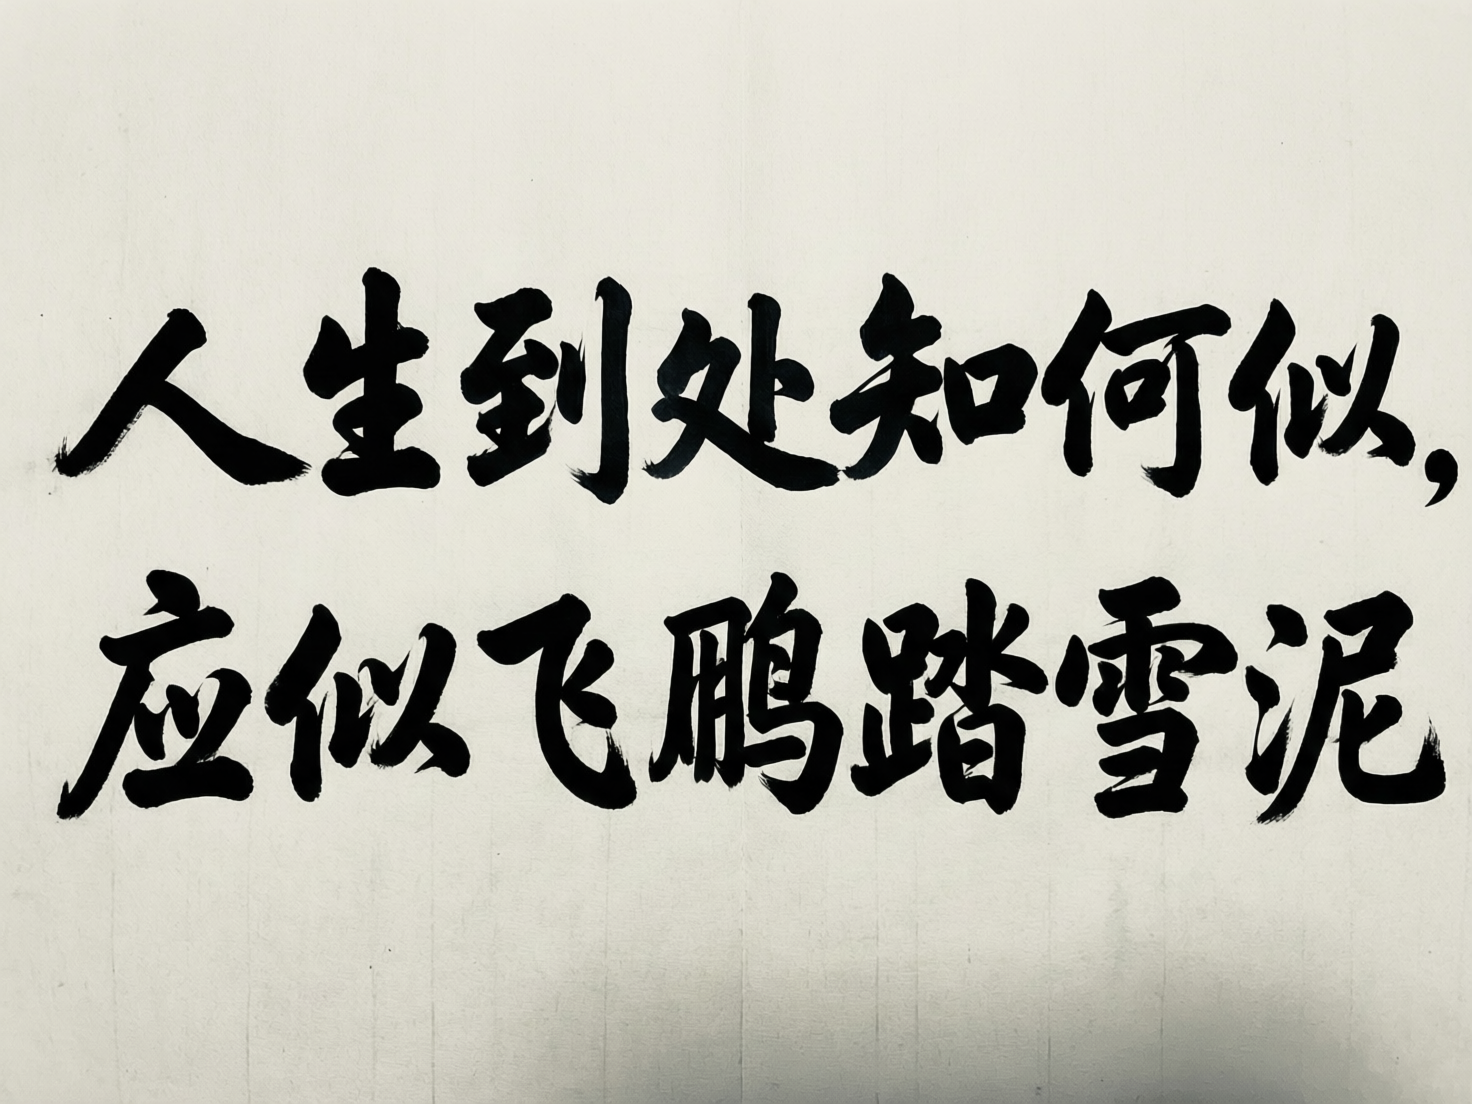 人生到处知何似,
应似飞鹏踏雪泥